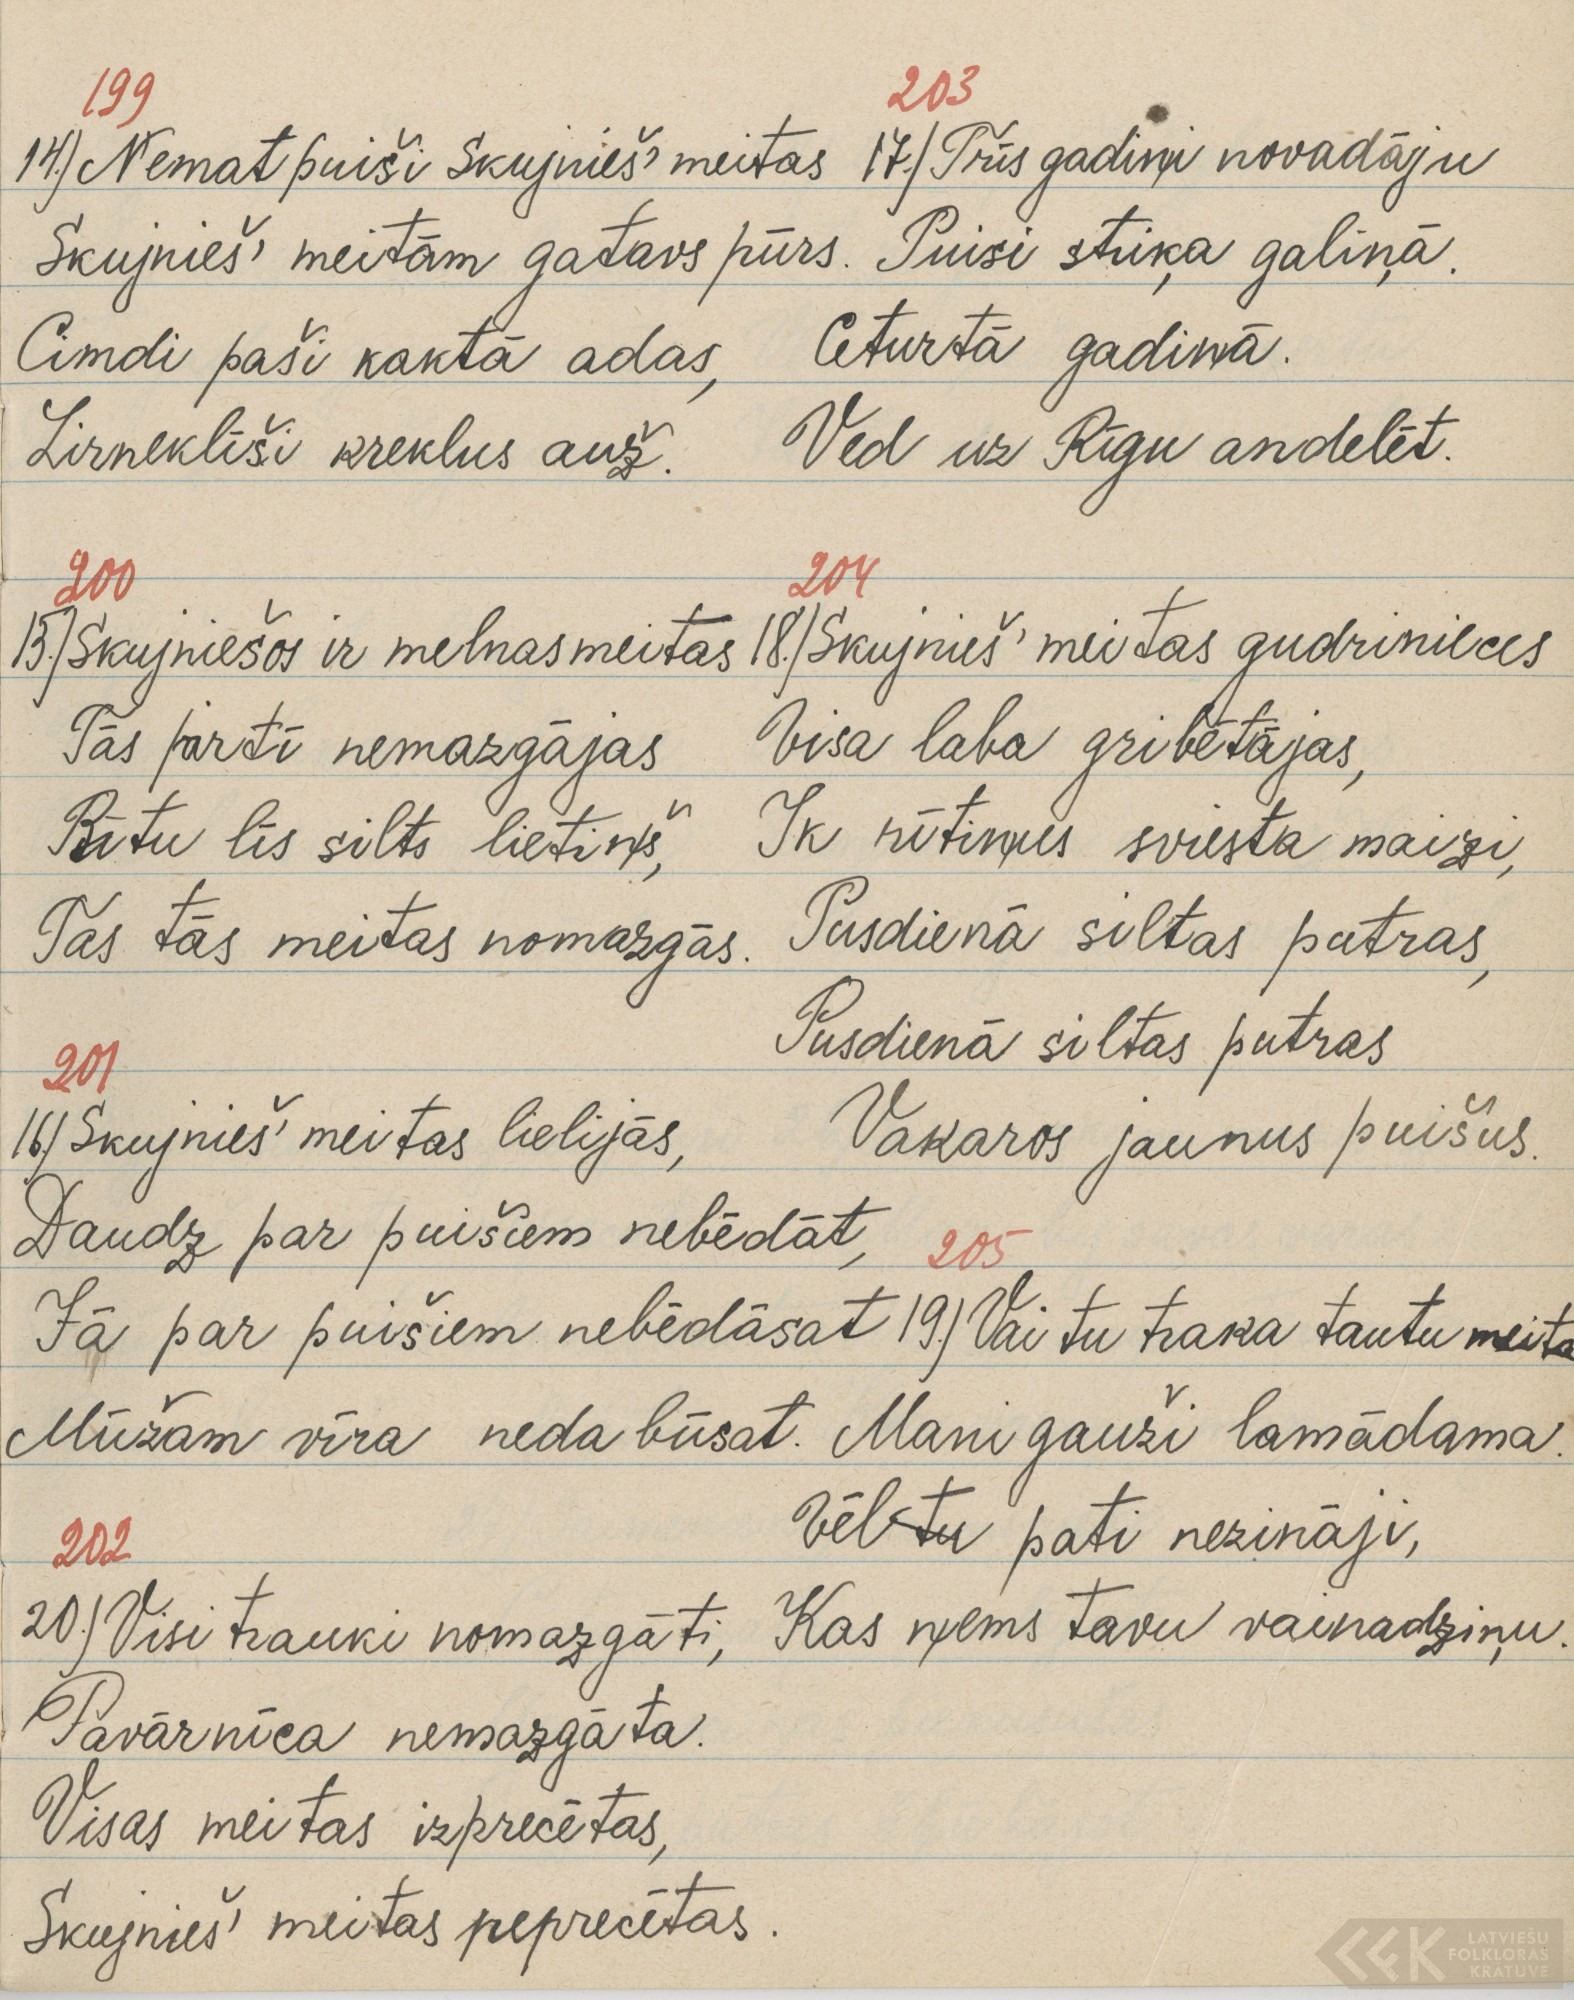 199
14.) Nemat puiši Skujnieš' meitas
Skujnieš' meitām gatavs pūrs.
Cimdi paši kaktā adas,
Zirneklīši kreklus auž.
200
15.) Skujniešos ir melnas meitas
Tās pirtī nemazgājas
Rītu līs silts lietiņš,
Tas tās meitas nomazgās.
201
16.) Skujnieš' meitas lielijās,
Daudz par puišiem nebēdāt,
Jā par puišiem nebēdāsat
Mūžam vīra nedabūsat.
202
20.) Visi trauki nomazgāti,
Pavārnīca nemazgāta.
Visas meitas izprecētas,
Skujnieš' meitas neprecētas.
203
17.) Trīs gadiņi novadāju
Puisi striķa galiņā.
Ceturtā gadiņā.
Ved uz Rīgu andelēt.
204
18.) Skujnieš' meitas gudriniecēs
Visa laba gribētājas,
Ik rītiņus sviesta maizi,
Pusdienā siltas putras,
Pusdienā siltas putras
Vakaros jaunus puišus.
205
19.) Vai tu traka tautu meita
Mani gauži lamādama.
Vēl tu pati nezināji,
Kas ņems tavu vainadziņu.
LATVIEŠU
FOLKLORAS
KRĀTUVE